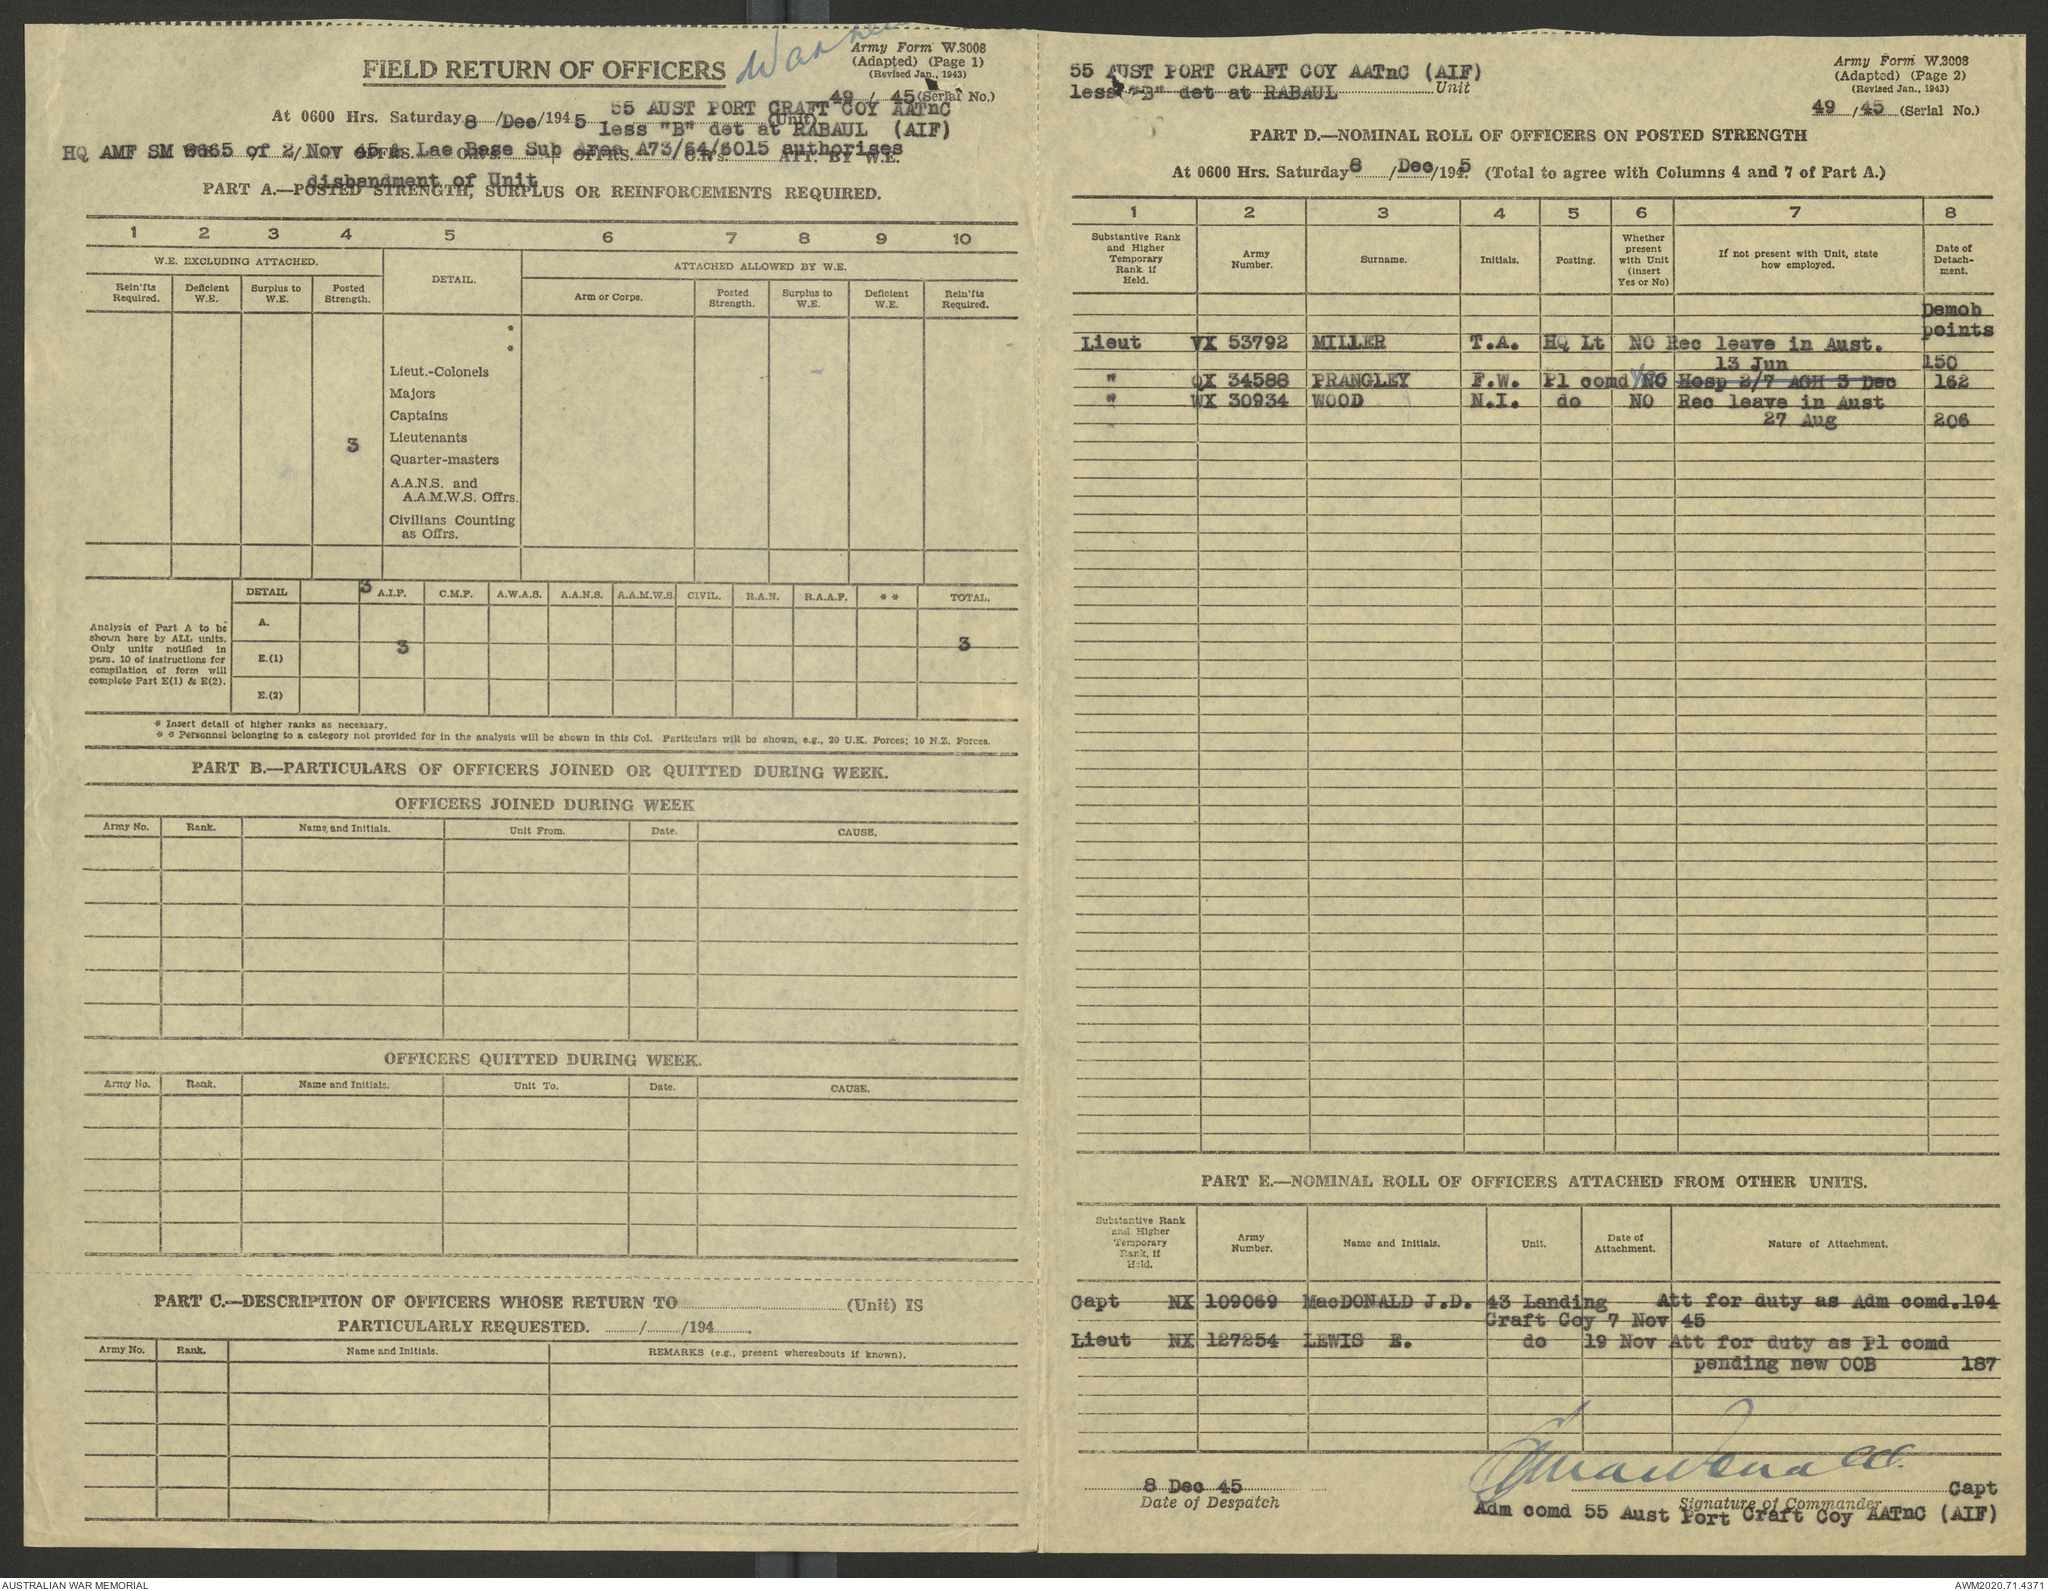 Army Form W.3008
(Adapted) (Page 1)
(Revised Jan., 1943)
FIELD RETURN OF OFFICERS
49 / 45 (Serial No.)
At 0600 Hrs. Saturday 8 /Dec /1945 55 AUST PORT CRAFT COY AATnC (Unit)
less "B" det at RABAUL (AIF)
HQ AMF SM of 2 Nov 45 & Lae Base Sub Area A73/64/6015 authorises
OFFRS. ATT. BY W.E.
disbandment of Unit
PART A.—POSTED STRENGTH, SURPLUS OR REINFORCEMENTS REQUIRED.
1 2 3 4 5 6 7 8 9 10
W.E. EXCLUDING ATTACHED. DETAIL. ATTACHED ALLOWED BY W.E.
Rein'fts Required. Deficient W.E. Surplus to W.E. Posted Strength. Arm or Corps. Posted Strength. Surplus to W.E. Deficient W.E. Rein'fts Required.
*
*
Lieut.-Colonels
Majors
Captains
3 Lieutenants
Quarter-masters
A.A.N.S. and
A.A.M.W.S. Offrs.
Civilians Counting
as Offrs.
DETAIL 3 A.I.F. C.M.F. A.W.A.S. A.A.N.S. A.A.M.W.S. CIVIL. R.A.N. R.A.A.F. * * TOTAL.
Analysis of Part A to be
shown here by ALL units.
Only units notified in
para. 10 of instructions for
compilation of form will
complete Part E(1) & E(2).
A.
E.(1) 3 3
E.(2)
* Insert detail of higher ranks as necessary.
* * Personnel belonging to a category not provided for in the analysis will be shown in this Col. Particulars will be shown, e.g., 20 U.K. Forces; 10 N.Z. Forces.
PART B.—PARTICULARS OF OFFICERS JOINED OR QUITTED DURING WEEK.
OFFICERS JOINED DURING WEEK
Army No. Rank. Name and Initials. Unit From. Date. CAUSE.
OFFICERS QUITTED DURING WEEK.
Army No. Rank. Name and Initials. Unit To. Date. CAUSE.
PART C.—DESCRIPTION OF OFFICERS WHOSE RETURN TO (Unit) IS
PARTICULARLY REQUESTED. / /194 .
Army No. Rank. Name and Initials. REMARKS (e.g., present whereabouts if known).
55 AUST PORT CRAFT COY AATnC (AIF)
less "B" det at RABAUL Unit
Army Form W.3008
(Adapted) (Page 2)
(Revised Jan., 1943)
49 / 45 (Serial No.)
PART D.—NOMINAL ROLL OF OFFICERS ON POSTED STRENGTH
At 0600 Hrs. Saturday 8 /Dec /1945 (Total to agree with Columns 4 and 7 of Part A.)
1 2 3 4 5 6 7 8
Substantive Rank and Higher Temporary Rank, if Held. Army Number. Surname. Initials. Posting. Whether present with Unit (insert Yes or No) If not present with Unit, state how employed. Date of Detachment.
Demob
points
Lieut VX 53792 MILLER T.A. HQ Lt NO Rec leave in Aust.
13 Jun 150
" QX 34588 PRANGLEY F.W. Pl comd Yes NO Hosp 2/7 AGH 3 Dec 162
" WX 30934 WOOD N.I. do NO Rec leave in Aust
27 Aug 206
PART E.—NOMINAL ROLL OF OFFICERS ATTACHED FROM OTHER UNITS.
Substantive Rank and Higher Temporary Rank, if Held. Army Number. Name and Initials. Unit. Date of Attachment. Nature of Attachment.
Capt NX 109069 MacDONALD J.D. 43 Landing Att for duty as Adm comd. 194
Craft Coy 7 Nov 45
Lieut NX 127254 LEWIS E. do 19 Nov Att for duty as Pl comd
pending new OOB 187
8 Dec 45 Capt
Date of Despatch Signature of Commander
Adm comd 55 Aust Port Craft Coy AATnC (AIF)
AUSTRALIAN WAR MEMORIAL AWM2020.71.4371